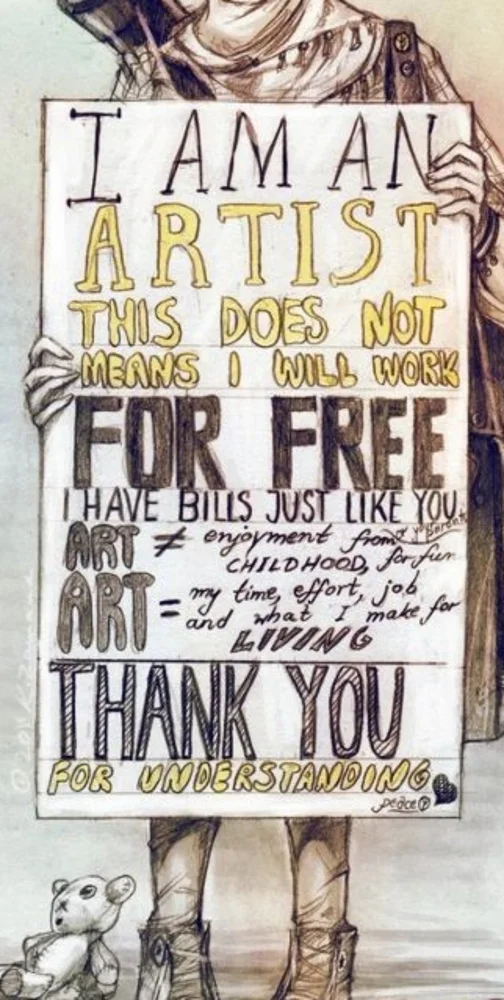 I AM AN
ARTIST
THIS DOES NOT
MEANS I WILL WORK
FOR FREE
I HAVE BILLS JUST LIKE YOU
or your parents
ART ≠ enjoyment from
CHILDHOOD, for fun
ART = my time, effort, job
and what I make for
LIVING
THANK YOU
FOR UNDERSTANDING
peace
© 2011